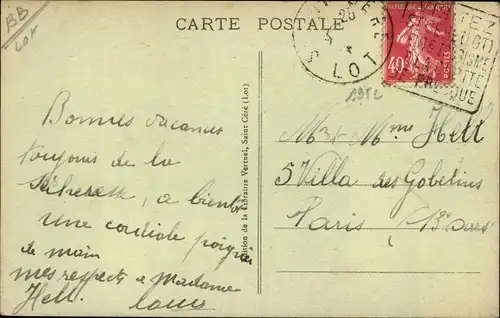 BB
LOT
CARTE POSTALE
LOT
RÉPUBLIQUE FRANÇAISE
40c
POSTES
1932
Bonnes vacances
toujours de la
sécheresse, a bientôt
une cordiale poignée
de main
mes respects a Madame
Hell. Louis
Edition de la Librairie Vertuel, Saint-Céré (Lot)
Mr et Mme Hell
5 Villa des Gobelins
Paris